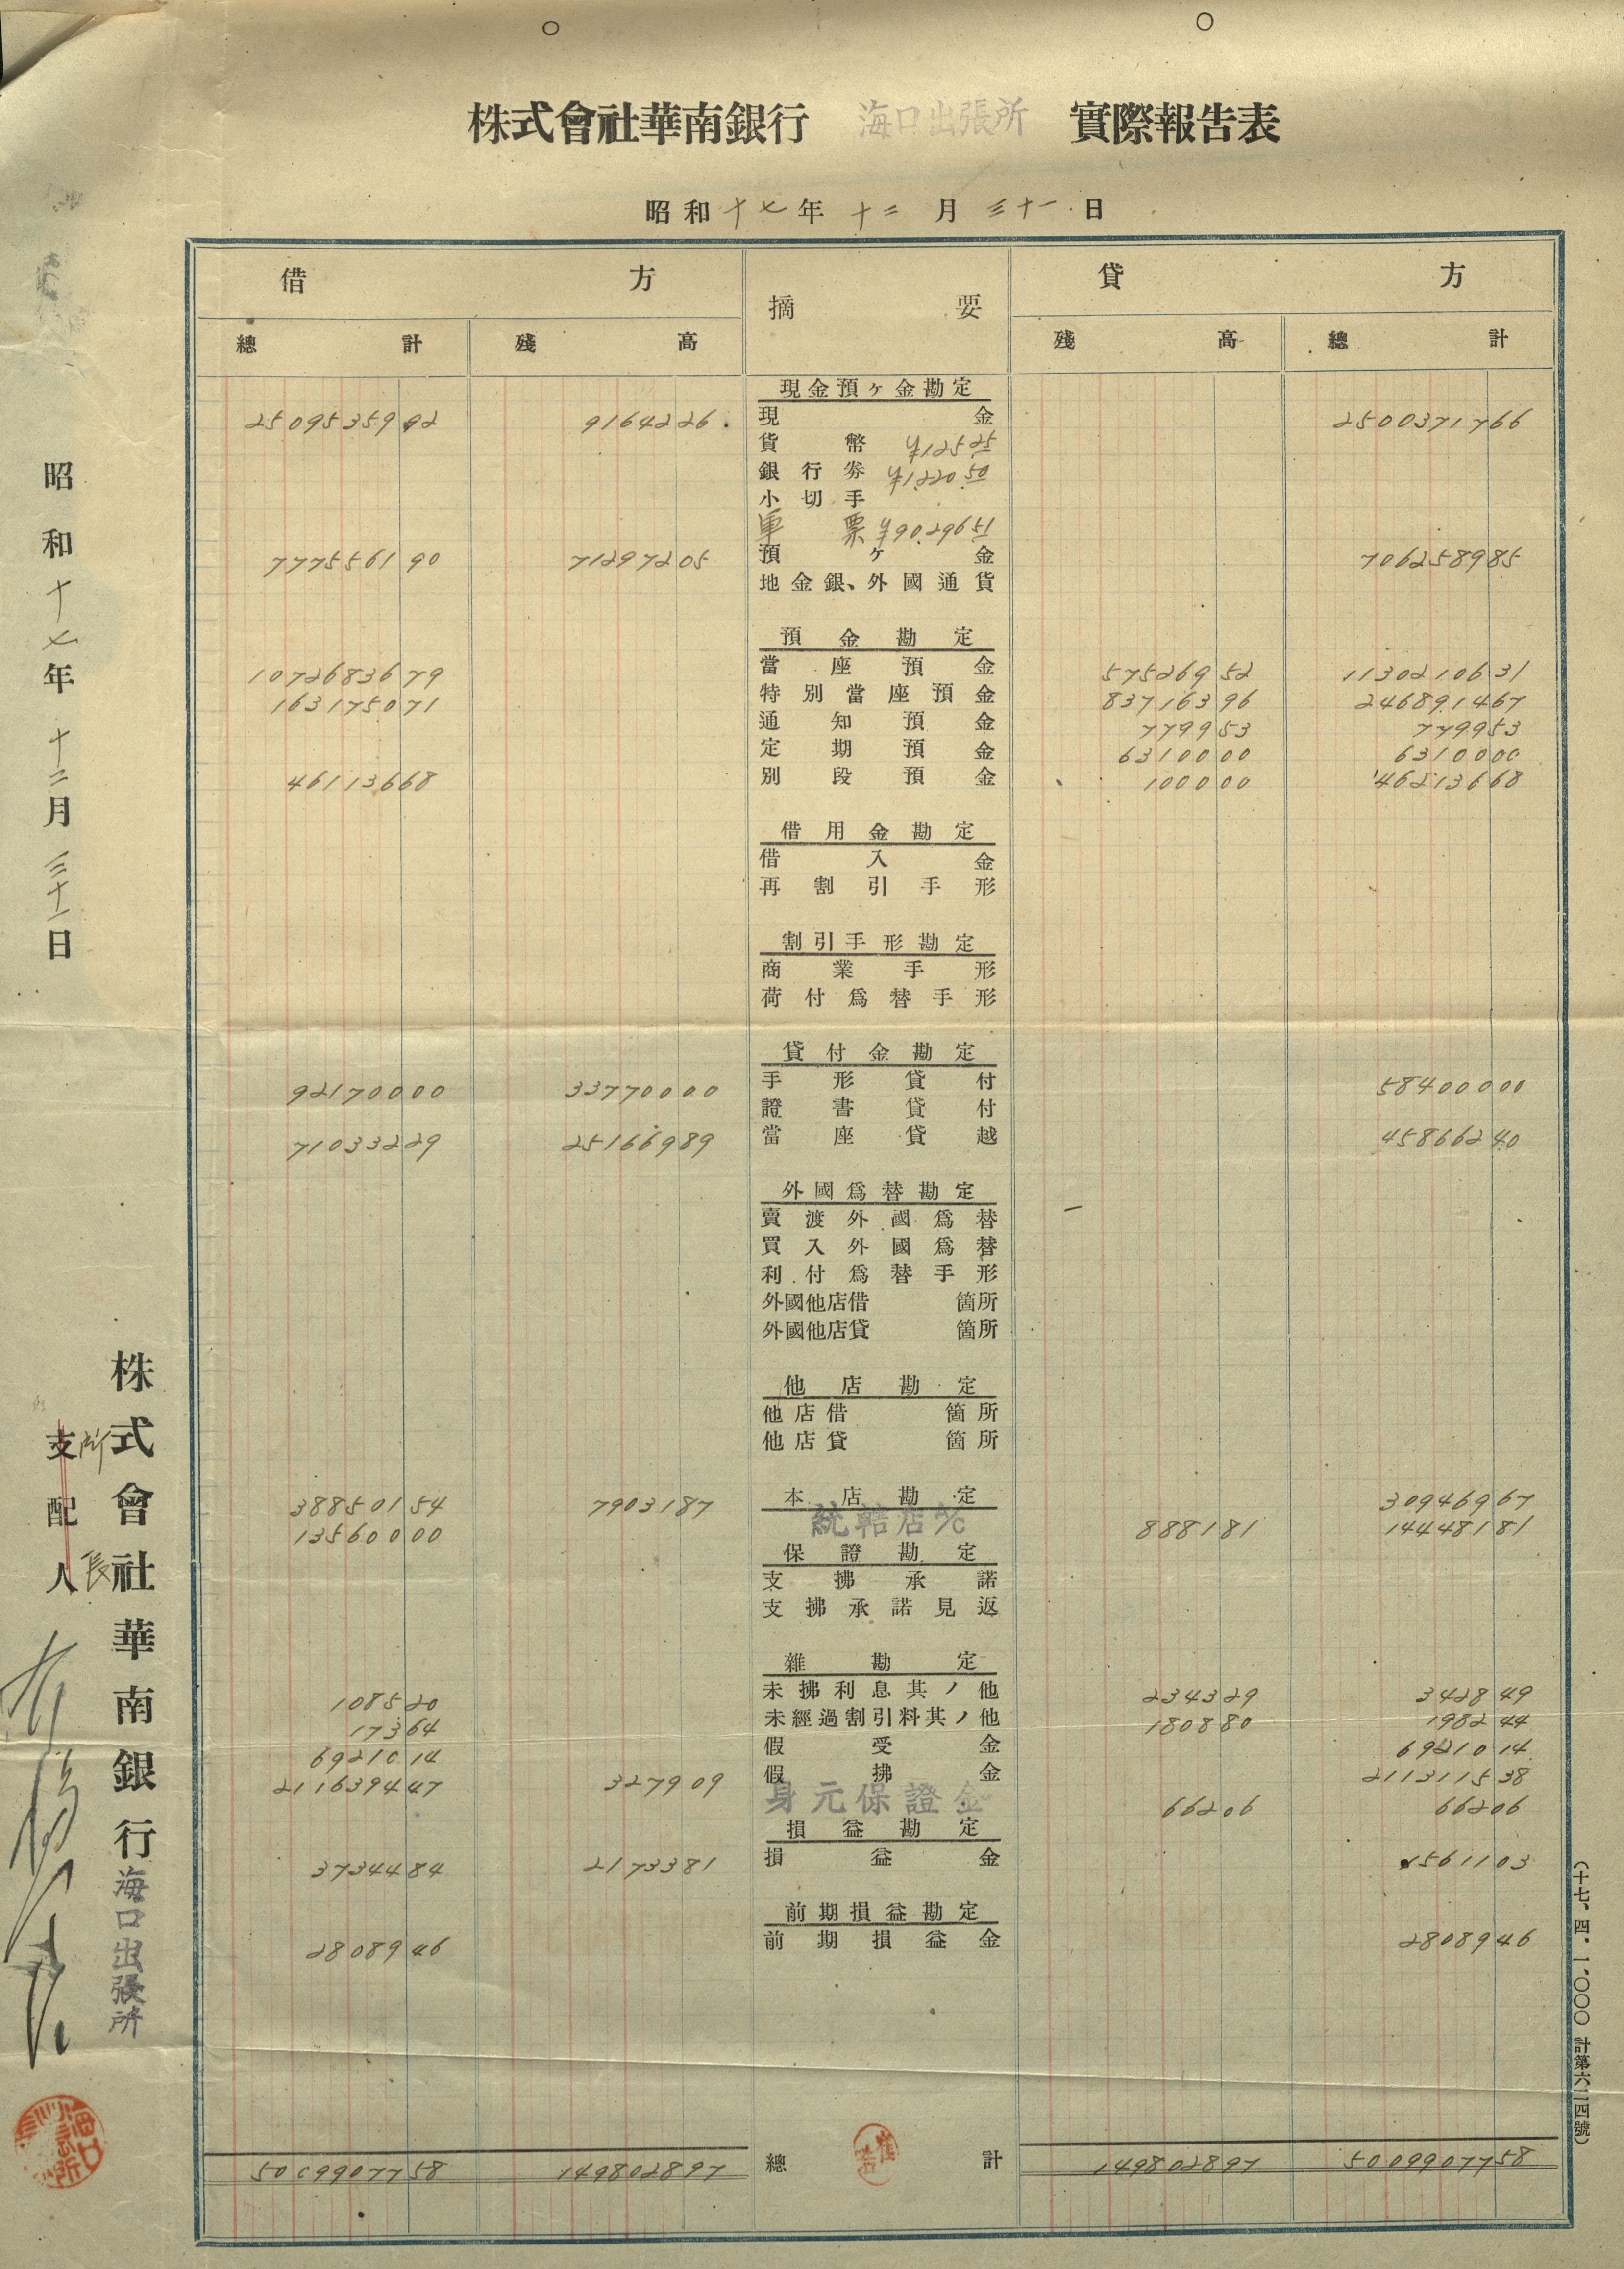 株式會社華南銀行 海口出張所 實際報告表
昭和十七年十二月三十一日
借方 摘要 貸方
總計 殘高 殘高 總計
現金預ヶ金勘定
2509535992 9164226 現金 2500371766
貨幣 ¥125.25
銀行券 ¥1,220.50
小切手
軍票 ¥90,296.51
77755 61 90 71297205 預ヶ金 706258985
地金銀、外國通貨
預金勘定
1072683679 當座預金 57526952 1130210631
163175071 特別當座預金 83716396 246891467
通知預金 779953 779953
定期預金 6310000 6310000
46113668 別段預金 100000 46213668
借用金勘定
借入金
再割引手形
割引手形勘定
商業手形
荷付爲替手形
貸付金勘定
92170000 33770000 手形貸付 58400000
證書貸付
71033229 25166989 當座貸越 45866240
外國爲替勘定
賣渡外國爲替
買入外國爲替
利付爲替手形
外國他店借 箇所
外國他店貸 箇所
他店勘定
他店借 箇所
他店貸 箇所
本店勘定
38850154 7903187 30946967
13560000 統轄店a/c 888181 14448181
保證勘定
支拂承諾
支拂承諾見返
雜勘定
108520 未拂利息其ノ他 234329 342849
17364 未經過割引料其ノ他 180880 198244
6921014 假受金 6921014
211639447 327909 假拂金 211311538
身元保證金 66206 66206
損益勘定
3734484 2173381 損益金 1561103
前期損益勘定
2808946 前期損益金 2808946
5009907758 149802897 總計 149802897 5009907758
昭和十七年十二月三十一日
株式會社華南銀行海口出張所
支配人
所長
(十七、四、一、〇〇〇 計第六二四號)